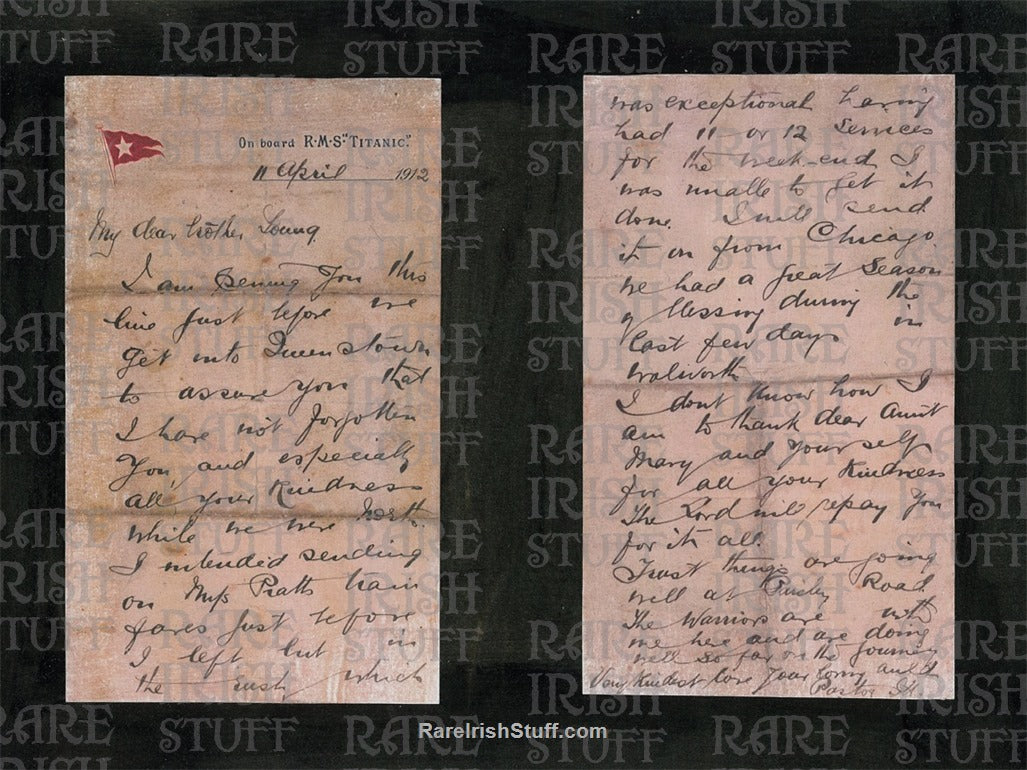 On board R·M·S·"TITANIC."
11 April 1912
My dear brother Young.
I am penning you this
line just before we
get into Queenstown
to assure you that
I have not forgotten
you, and especially
all your kindness
while we were North.
I intended sending
on Miss Pratts train
fares just before
I left but in
the rush which
was exceptional having
had 11 or 12 Services
for the week-end I
was unable to get it
done. I will send
it on from Chicago.
We had a great season
of blessing during the
last few days in
Walworth
I dont know how I
am to thank dear Aunt
Mary and yourself
for all your kindness
The Lord will repay you
for it all.
Trust things are going
well at Paisley Road.
The Warriors are with
me here and are doing
well so far on the journey
Very kindest love Your loving auld
Pastor JH.
RareIrishStuff.com
RARE IRISH STUFF